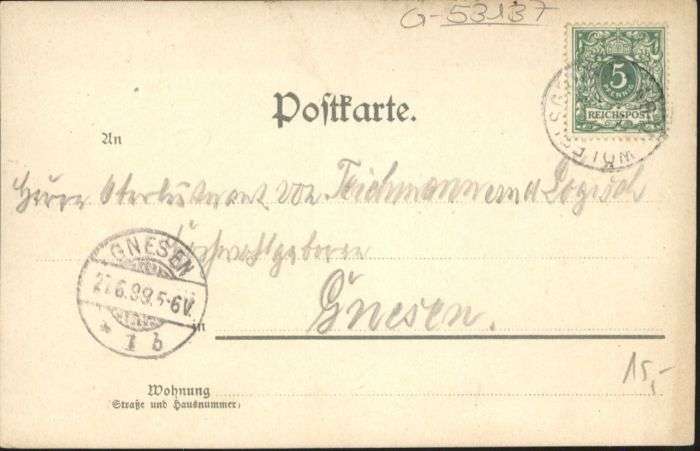 G-53137
5
PFENNIG
REICHSPOST
WÖLFELSG
Postkarte.
An
Herrn Oberleutnant von Teichmann und Logisch
Hochwohlgeboren
GNESEN
27.6.99.5-6V.
* 1 b
in Gnesen.
15,-
Wohnung
Straße und Hausnummer: